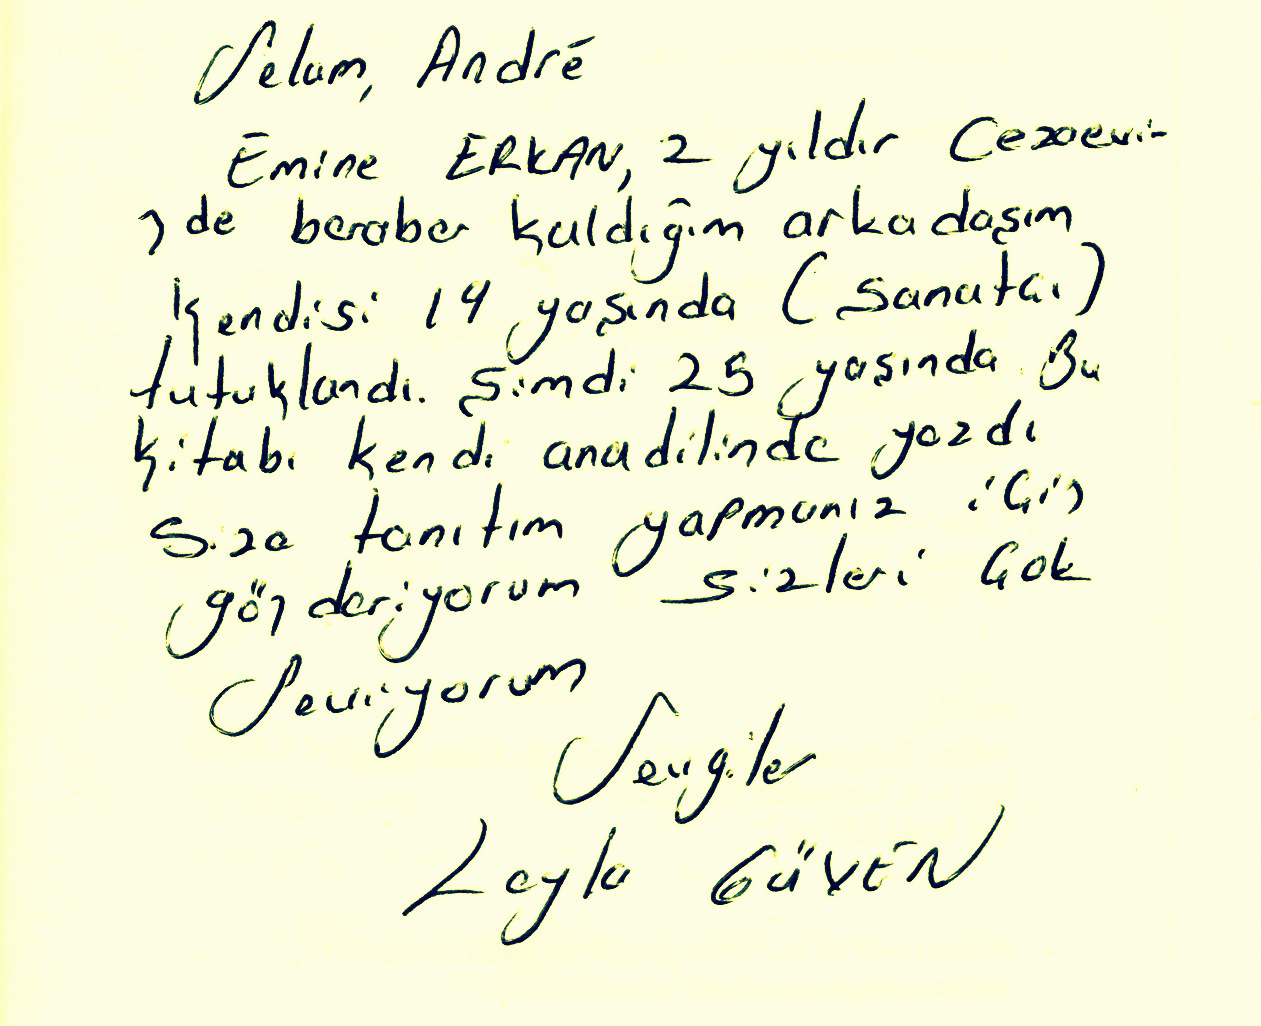 Selam, André
Emine ERKAN, 2 yıldır Cezaevi-
nde beraber kaldığım arkadaşım
kendisi 14 yaşında (sanatçı)
tutuklandı. Şimdi 25 yaşında Bu
kitabı kendi anadilinde yazdı
Size tanıtım yapmanız için
gönderiyorum sizleri çok
Seviyorum
Sevgiler
Leyla GÜVEN